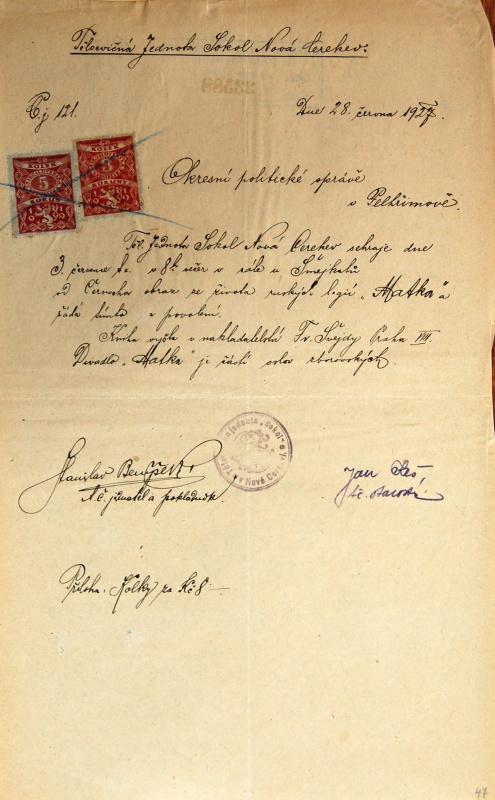 Tělocvičná Jednota Sokol Nová Cerekev.
Č.j. 121.
Dne 28. června 1927.
5
3
KOLEK
KOLEK
KORUN
KORUNY
1919
1919
Okresní politické správě
v Pelhřimově.
Těl. Jednota Sokol Nová Cerekev sehraje dne
3. července t.r. v 8h večer v sále u Šmejkalů
od Černocha obraz ze života ruských legií „Matka“ a
žádá tímto o povolení.
Kniha vyšla v nakladatelství Fr. Švejdy Praha VIII.
Divadlo „Matka“ je částí oslav zborovských.
v Nové Cer
Stanislav
t.č. jednatel a pokladník.
Jan
t.č. starosta
Příloha: Kolky za Kč 8.—
47